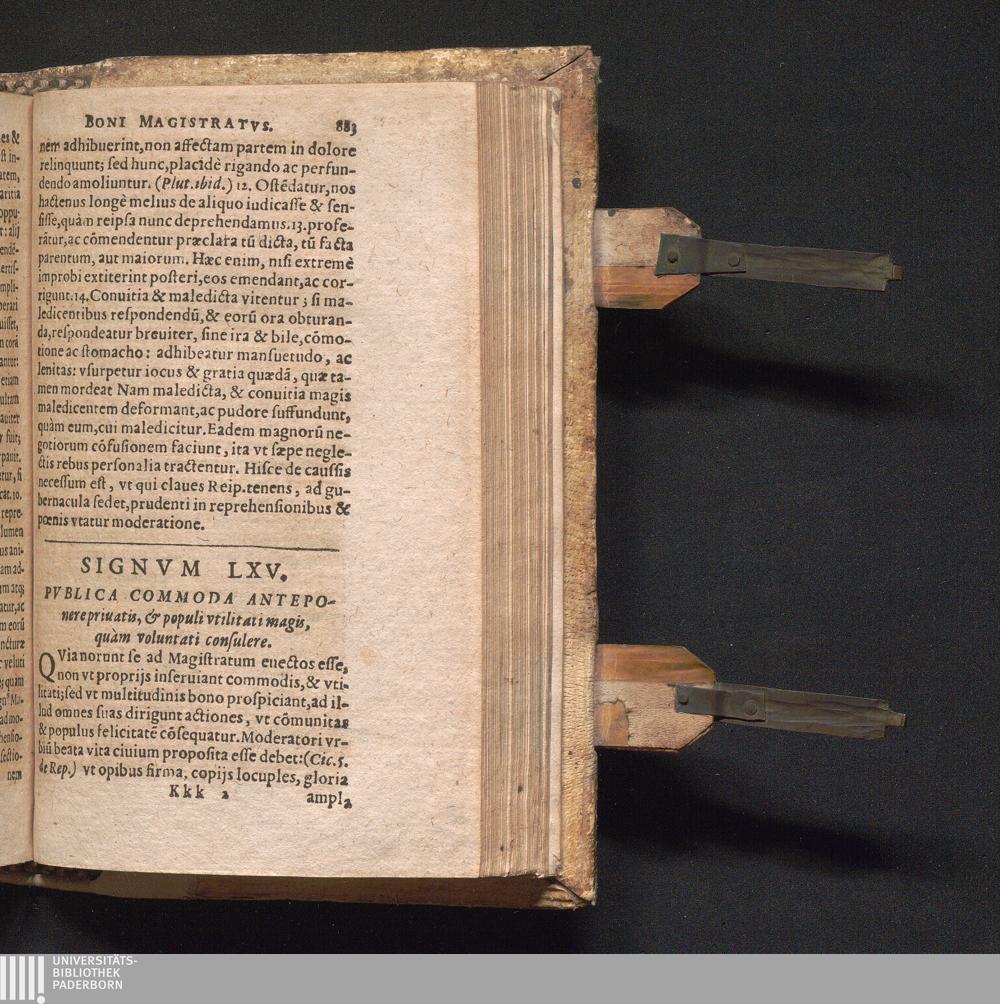 BONI MAGISTRATVS. 883
nem adhibuerint, non affectam partem in dolore
relinquunt; ſed hunc, placidè rigando ac perfun-
dendo amoliuntur. (Plut. ibid.) 12. Oſtẽdatur, nos
hactenus longè melius de aliquo iudicaſſe & ſen-
ſiſſe, quàm reipſa nunc deprehendamus. 13. profe-
rãtur, ac cõmendentur præclara tũ dicta, tũ facta
parentum, aut maiorum. Hæc enim, niſi extremè
improbi extiterint poſteri, eos emendant, ac cor-
rigunt. 14. Conuitia & maledicta vitentur; ſi ma-
ledicentibus reſpondendũ, & eorũ ora obturan-
da, reſpondeatur breuiter, ſine ira & bile, cõmo-
tione ac ſtomacho: adhibeatur manſuetudo, ac
lenitas: vſurpetur iocus & gratia quædã, quæ ta-
men mordeat Nam maledicta, & conuitia magis
maledicentem deformant, ac pudore ſuffundunt,
quàm eum, cui maledicitur. Eadem magnorũ ne-
gotiorum cõfuſionem faciunt, ita vt ſæpe negle-
ctis rebus perſonalia tractentur. Hiſce de cauſſis
neceſſum eſt, vt qui claues Reip. tenens, ad gu-
bernacula ſedet, prudenti in reprehenſionibus &
pœnis vtatur moderatione.
SIGNVM LXV.
PVBLICA COMMODA ANTEPO-
nere priuatis, & populi vtilitati magis,
quàm voluntati conſulere.
QVia norunt ſe ad Magiſtratum euectos eſſe,
non vt proprijs inſeruiant commodis, & vti-
litati; ſed vt multitudinis bono proſpiciant, ad il-
lud omnes ſuas dirigunt actiones, vt cõmunitas
& populus felicitatẽ cõſequatur. Moderatori vr-
biũ beata vita ciuium propoſita eſſe debet: (Cic. 5.
de Rep.) vt opibus firma, copijs locuples, gloria
Kkk 2 ampla
UNIVERSITÄTS-
BIBLIOTHEK
PADERBORN